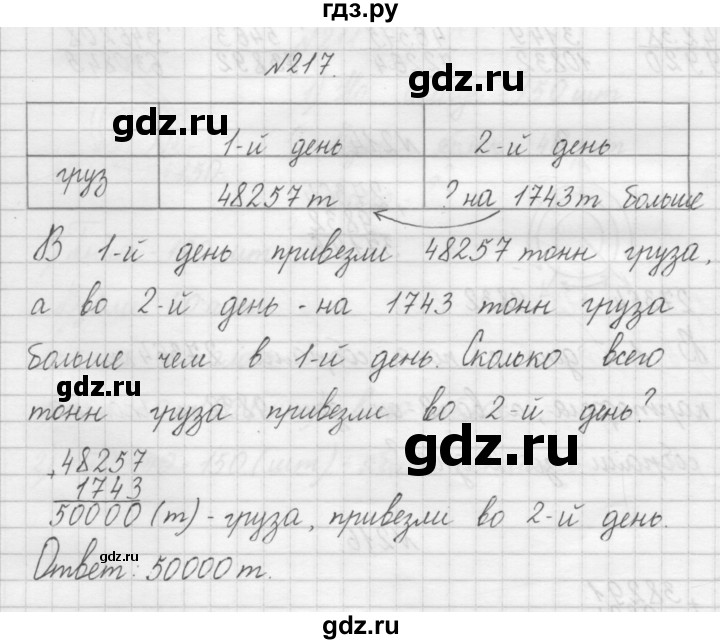 гдз.ру
№217.
gdz.ru
gdz.ru
1-й день 2-й день
груз 48257 т ? на 1743 т больше
В 1-й день привезли 48257 тонн груза,
а во 2-й день - на 1743 тонн груза
больше чем в 1-й день. Сколько всего
gdz.ru
тонн груза привезли во 2-й день?
gdz.ru
+48257
1743
50000 (т) - груза, привезли во 2-й день.
gdz.ru
Ответ: 50000 т.
gdz.ru
gdz.ru